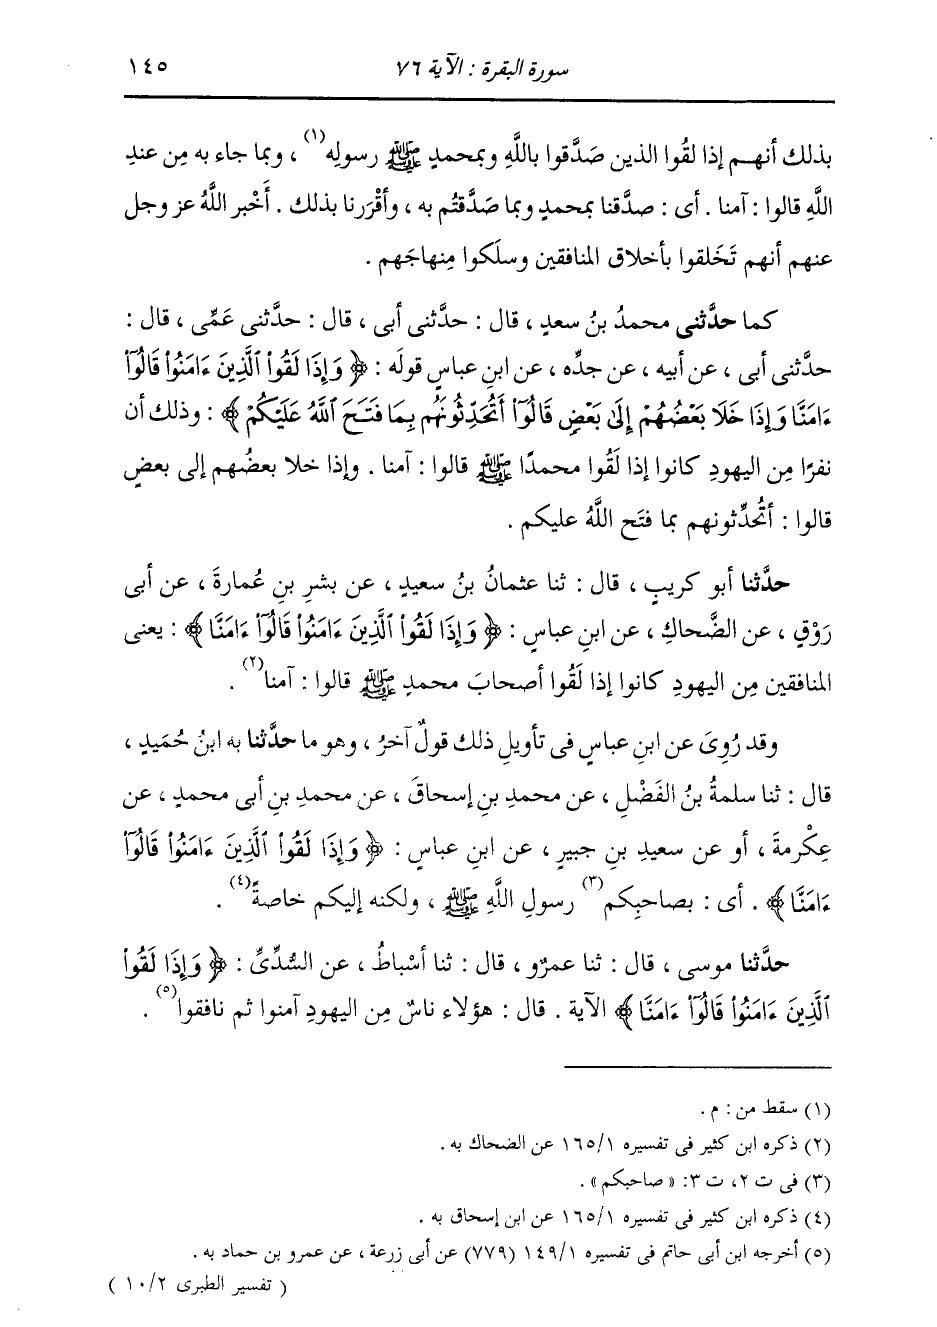 سورة البقرة : الآية ٧٦
١٤٥
بذلك أنهم إذا لقُوا الذين صَدَّقوا باللَّهِ وبمحمدٍ ﷺ رسولِه(١) ، وبما جاء به مِن عندِ
اللَّهِ قالوا : آمنا . أى : صدَّقنا بمحمدٍ وبما صَدَّقتُم به ، وأقْرَرنا بذلك . أَخْبر اللَّهُ عز وجل
عنهم أنهم تَخَلقوا بأخلاق المنافقين وسلَكوا مِنهاجَهم .
كما حدَّثنى محمدُ بنُ سعدٍ ، قال : حدَّثنى أبى ، قال : حدَّثنى عَمِّى ، قال :
حدَّثنى أبى ، عن أبيه ، عن جدِّه ، عن ابنِ عباسٍ قولَه : ﴿ وَإِذَا لَقُوا۟ ٱلَّذِينَ ءَامَنُوا۟ قَالُوٓا۟
ءَامَنَّا وَإِذَا خَلَا بَعْضُهُمْ إِلَىٰ بَعْضٍ قَالُوٓا۟ أَتُحَدِّثُونَهُم بِمَا فَتَحَ ٱللَّهُ عَلَيْكُمْ ﴾ : وذلك أن
نفرًا مِن اليهودِ كانوا إذا لَقُوا محمدًا ﷺ قالوا : آمنا . وإذا خلا بعضُهم إلى بعضٍ
قالوا : أتُحدِّثونهم بما فتَح اللَّهُ عليكم .
حدَّثنا أبو كريبٍ ، قال : ثنا عثمانُ بنُ سعيدٍ ، عن بشرِ بنِ عُمارةَ ، عن أبى
رَوْقٍ ، عن الضَّحاكِ ، عن ابنِ عباسٍ : ﴿ وَإِذَا لَقُوا۟ ٱلَّذِينَ ءَامَنُوا۟ قَالُوٓا۟ ءَامَنَّا ﴾ : يعنى
المنافقين مِن اليهودِ كانوا إذا لَقُوا أصحابَ محمدٍ ﷺ قالوا : آمنا(٢) .
وقد رُوِىَ عن ابنِ عباسٍ فى تأويلِ ذلك قولٌ آخرُ ، وهو ما حدَّثنا به ابنُ حُمَيدٍ ،
قال : ثنا سلمةُ بنُ الفَضْلِ ، عن محمدِ بنِ إسحاقَ ، عن محمدِ بنِ أبى محمدٍ ، عن
عِكْرمةَ ، أو عن سعيدِ بنِ جبيرٍ ، عن ابنِ عباسٍ : ﴿ وَإِذَا لَقُوا۟ ٱلَّذِينَ ءَامَنُوا۟ قَالُوٓا۟
ءَامَنَّا ﴾ . أى : بصاحبِكم(٣) رسولِ اللَّهِ ﷺ ، ولكنه إليكم خاصةً(٤) .
حدَّثنا موسى ، قال : ثنا عمرٌو ، قال : ثنا أسْباطُ ، عن السُّدِّىِّ : ﴿ وَإِذَا لَقُوا۟
ٱلَّذِينَ ءَامَنُوا۟ قَالُوٓا۟ ءَامَنَّا ﴾ الآية . قال : هؤلاء ناسٌ مِن اليهودِ آمنوا ثم نافقوا(٥) .
(١) سقط من : م .
(٢) ذكره ابن كثير فى تفسيره ١٦٥/١ عن الضحاك به .
(٣) فى ت ٢، ت ٣: « صاحبكم » .
(٤) ذكره ابن كثير فى تفسيره ١٦٥/١ عن ابن إسحاق به .
(٥) أخرجه ابن أبى حاتم فى تفسيره ١٤٩/١ (٧٧٩) عن أبى زرعة ، عن عمرو بن حماد به .
( تفسير الطبرى ١٠/٢ )